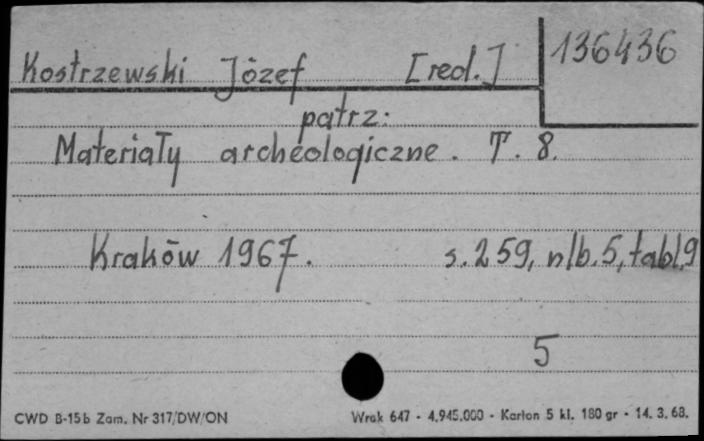 Kostrzewski Józef [red.] 136436
patrz:
Materiały archeologiczne. T. 8.
Kraków 1967. s. 259, nlb. 5, tabl. 9
5
CWD B-15b Zam. Nr 317/DW/ON Wrak 647 - 4.945.000 - Karton 5 kl. 180 gr - 14. 3. 68.